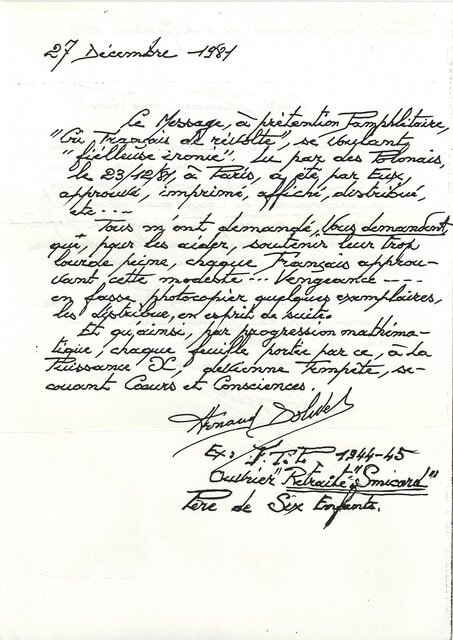 27 Décembre 1981
Ce Message, à prétention Pamphlétaire,
"Cri Français de révolte", se voulant
"fielleuse ironie". Lu par des Polonais,
le 23/12/81, à Paris, a été par Eux,
approuvé, imprimé, affiché, distribué,
etc....
Tous m'ont demandé, Vous demandant
que, pour les aider, soutenir leur trop
lourde peine, chaque Français approu-
vant cette modeste... Vengeance ----
en fasse, photocopier quelques exemplaires,
les distribue, en esprit de suite.
Et qu'ainsi, par progression mathéma-
tique, chaque feuille portée par ce, à la
Puissance X, devienne Tempête, se-
couant Coeurs et Consciences.
Arnaud
Ex: F.T.P. 1944-45
Ouvrier "Retraité" "Smicard"
Père de Six Enfants.